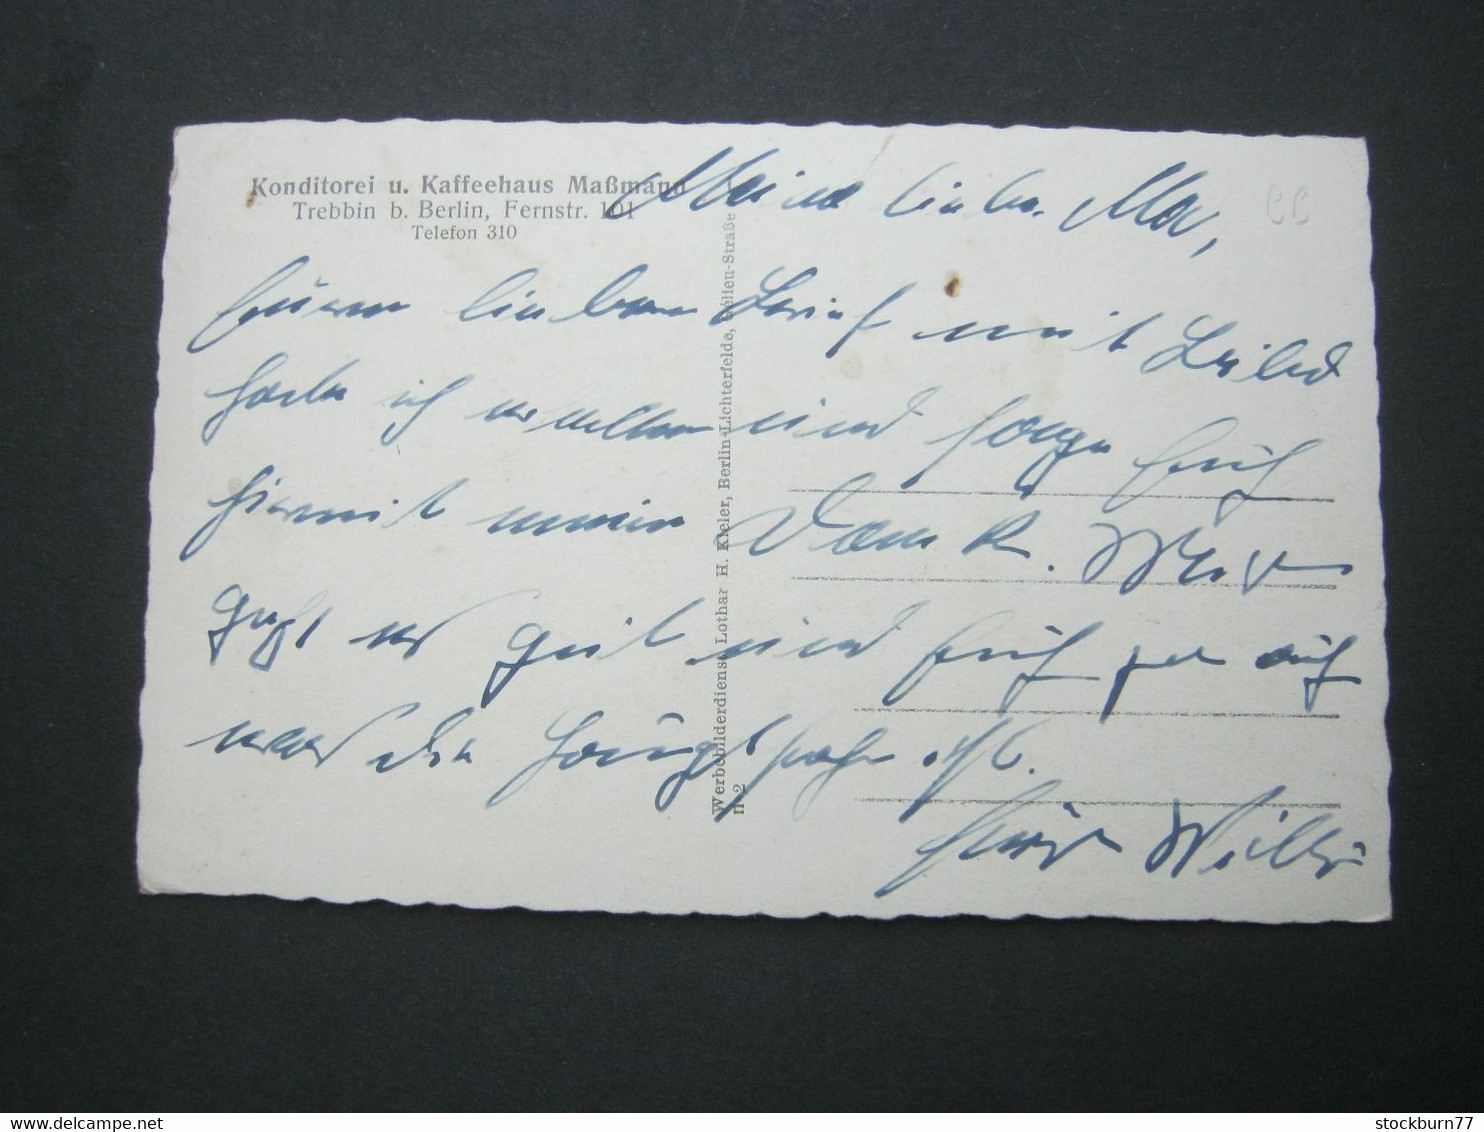 Konditorei u. Kaffeehaus Maßmann
Trebbin b. Berlin, Fernstr. 101
Telefon 310
Werbebilderdienst Lothar H. Kieler, Berlin-Lichterfelde, Bélieu-Straße
n 2
Meine lieben
Euren lieben Brief mit Bild
habe ich erhalten und sage Euch
hiermit meinen Dank. Mir
geht es gut und Euch ja auch
was die Hauptsache ist.
Euer Willi
stockburn77